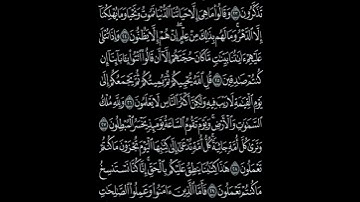 تَذَكَّرُونَ ٢٣ وَقَالُوا۟ مَا هِىَ إِلَّا حَيَاتُنَا ٱلدُّنْيَا نَمُوتُ وَنَحْيَا وَمَا يُهْلِكُنَآ
إِلَّا ٱلدَّهْرُ ۚ وَمَا لَهُم بِذَٰلِكَ مِنْ عِلْمٍ ۖ إِنْ هُمْ إِلَّا يَظُنُّونَ ٢٤ وَإِذَا تُتْلَىٰ
عَلَيْهِمْ ءَايَٰتُنَا بَيِّنَٰتٍ مَّا كَانَ حُجَّتَهُمْ إِلَّآ أَن قَالُوا۟ ٱئْتُوا۟ بِـَٔابَآئِنَآ إِن
كُنتُمْ صَٰدِقِينَ ٢٥ قُلِ ٱللَّهُ يُحْيِيكُمْ ثُمَّ يُمِيتُكُمْ ثُمَّ يَجْمَعُكُمْ إِلَىٰ
يَوْمِ ٱلْقِيَٰمَةِ لَا رَيْبَ فِيهِ وَلَٰكِنَّ أَكْثَرَ ٱلنَّاسِ لَا يَعْلَمُونَ ٢٦ وَلِلَّهِ مُلْكُ
ٱلسَّمَٰوَٰتِ وَٱلْأَرْضِ ۚ وَيَوْمَ تَقُومُ ٱلسَّاعَةُ يَوْمَئِذٍ يَخْسَرُ ٱلْمُبْطِلُونَ ٢٧
وَتَرَىٰ كُلَّ أُمَّةٍ جَاثِيَةً ۚ كُلُّ أُمَّةٍ تُدْعَىٰٓ إِلَىٰ كِتَٰبِهَا ٱلْيَوْمَ تُجْزَوْنَ مَا كُنتُمْ
تَعْمَلُونَ ٢٨ هَٰذَا كِتَٰبُنَا يَنطِقُ عَلَيْكُم بِٱلْحَقِّ ۚ إِنَّا كُنَّا نَسْتَنسِخُ
مَا كُنتُمْ تَعْمَلُونَ ٢٩ فَأَمَّا ٱلَّذِينَ ءَامَنُوا۟ وَعَمِلُوا۟ ٱلصَّٰلِحَٰتِ